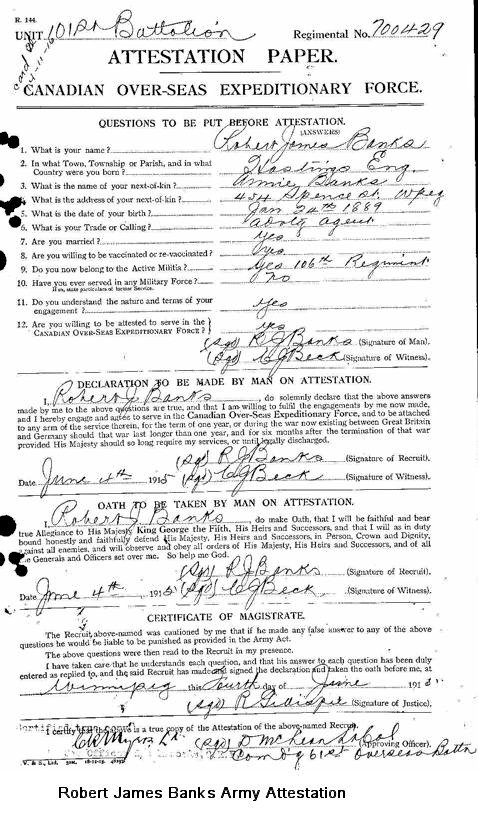 R. 144.
UNIT. 101st Battalion Regimental No. 700429
card
04-11-16
ATTESTATION PAPER.
CANADIAN OVER-SEAS EXPEDITIONARY FORCE.
QUESTIONS TO BE PUT BEFORE ATTESTATION.
(ANSWERS)
1. What is your name? Robert James Banks
2. In what Town, Township or Parish, and in what
Country were you born? Hastings Eng.
3. What is the name of your next-of-kin? Annie Banks
4. What is the address of your next-of-kin? 454 Spence St. Wpeg
5. What is the date of your birth? Jan 24th 1889
6. What is your Trade or Calling? Advtg Agent
7. Are you married? Yes
8. Are you willing to be vaccinated or re-vaccinated? Yes
9. Do you now belong to the Active Militia? Yes 106th Regiment
10. Have you ever served in any Military Force? No
If so, state particulars of former Service.
11. Do you understand the nature and terms of your
engagement? Yes
12. Are you willing to be attested to serve in the
CANADIAN OVER-SEAS EXPEDITIONARY FORCE? Yes
(Sgd) R J Banks (Signature of Man).
(Sgd) C J Beck (Signature of Witness).
DECLARATION TO BE MADE BY MAN ON ATTESTATION.
I, Robert J. Banks, do solemnly declare that the above answers
made by me to the above questions are true, and that I am willing to fulfil the engagements by me now made,
and I hereby engage and agree to serve in the Canadian Over-Seas Expeditionary Force, and to be attached
to any arm of the service therein, for the term of one year, or during the war now existing between Great Britain
and Germany should that war last longer than one year, and for six months after the termination of that war
provided His Majesty should so long require my services, or until legally discharged.
(Sgd) R J Banks (Signature of Recruit).
Date June 4th 1915 (Sgd) C J Beck (Signature of Witness).
OATH TO BE TAKEN BY MAN ON ATTESTATION.
I, Robert J Banks, do make Oath, that I will be faithful and bear
true Allegiance to His Majesty King George the Fifth, His Heirs and Successors, and that I will as in duty
bound honestly and faithfully defend His Majesty, His Heirs and Successors, in Person, Crown and Dignity,
against all enemies, and will observe and obey all orders of His Majesty, His Heirs and Successors, and of all
the Generals and Officers set over me. So help me God.
(Sgd) R J Banks (Signature of Recruit).
Date June 4th 1915 (Sgd) C J Beck (Signature of Witness).
CERTIFICATE OF MAGISTRATE.
The Recruit above-named was cautioned by me that if he made any false answer to any of the above
questions he would be liable to be punished as provided in the Army Act.
The above questions were then read to the Recruit in my presence.
I have taken care that he understands each question, and that his answer to each question has been duly
entered as replied to, and the said Recruit has made and signed the declaration and taken the oath before me, at
Winnipeg this Fourth day of June 1915
(Sgd) R Gillespie (Signature of Justice).
I certify that the above is a true copy of the Attestation of the above-named Recruit.
(Sgd) (Approving Officer).
Comdg 61st Overseas Battn
V. & S., Ltd.
Robert James Banks Army Attestation